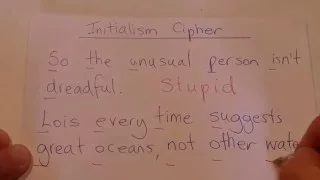 Initialism Cipher
So the unusual person isn't
dreadful. Stupid
Lois every time suggests
great oceans, not other